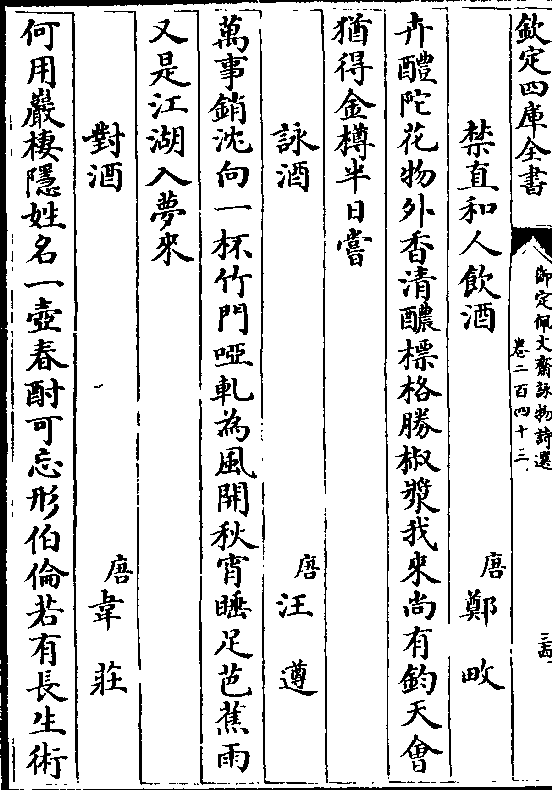 欽定四庫全書
御定佩文齋詠物詩選
卷二百四十三
禁直和人飲酒 唐 鄭畋
卉醴陀花物外香清醲標格勝椒漿我來尚有鈞天會
猶得金樽半日嘗
詠酒 唐 汪遵
萬事銷沈向一杯竹門啞軋為風開秋宵睡足芭蕉雨
又是江湖入夢來
對酒 唐 韋莊
何用巖棲隱姓名一壺春酎可忘形伯倫若有長生術